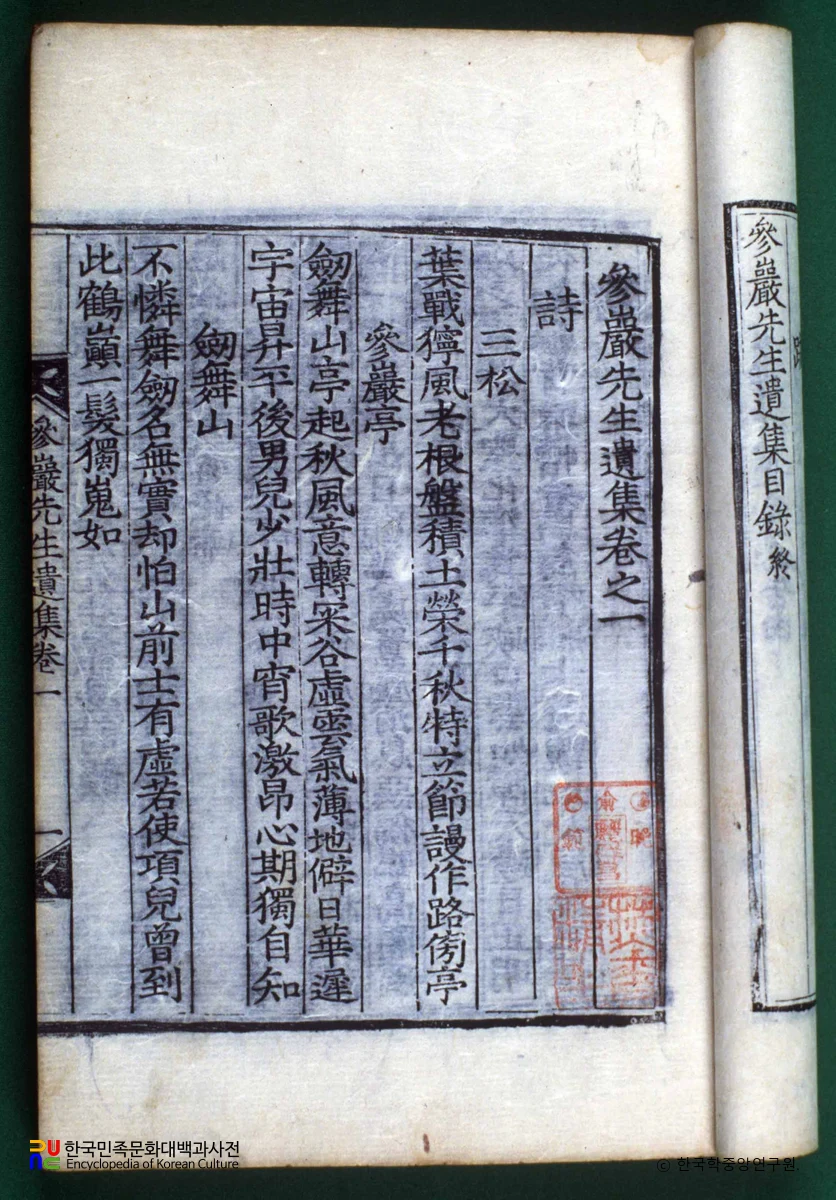 參巖先生遺集目錄 終
參巖先生遺集卷之一
詩
三松
葉戰獰風老根盤積土榮千秋特立節謾作路傍亭
參巖亭
劒舞山亭起秋風意轉深谷虛雲氣薄地僻日華遲
宇宙昇平後男兒少壯時中宵歌激昂心期獨自知
劒舞山
不憐舞劒名無實却怕山前士有虛若使項兒曾到
此鶴巓一髮獨嵬如
參巖先生遺集卷一
一
한국민족문화대백과사전
Encyclopedia of Korean Culture
ⓒ 한국학중앙연구원.